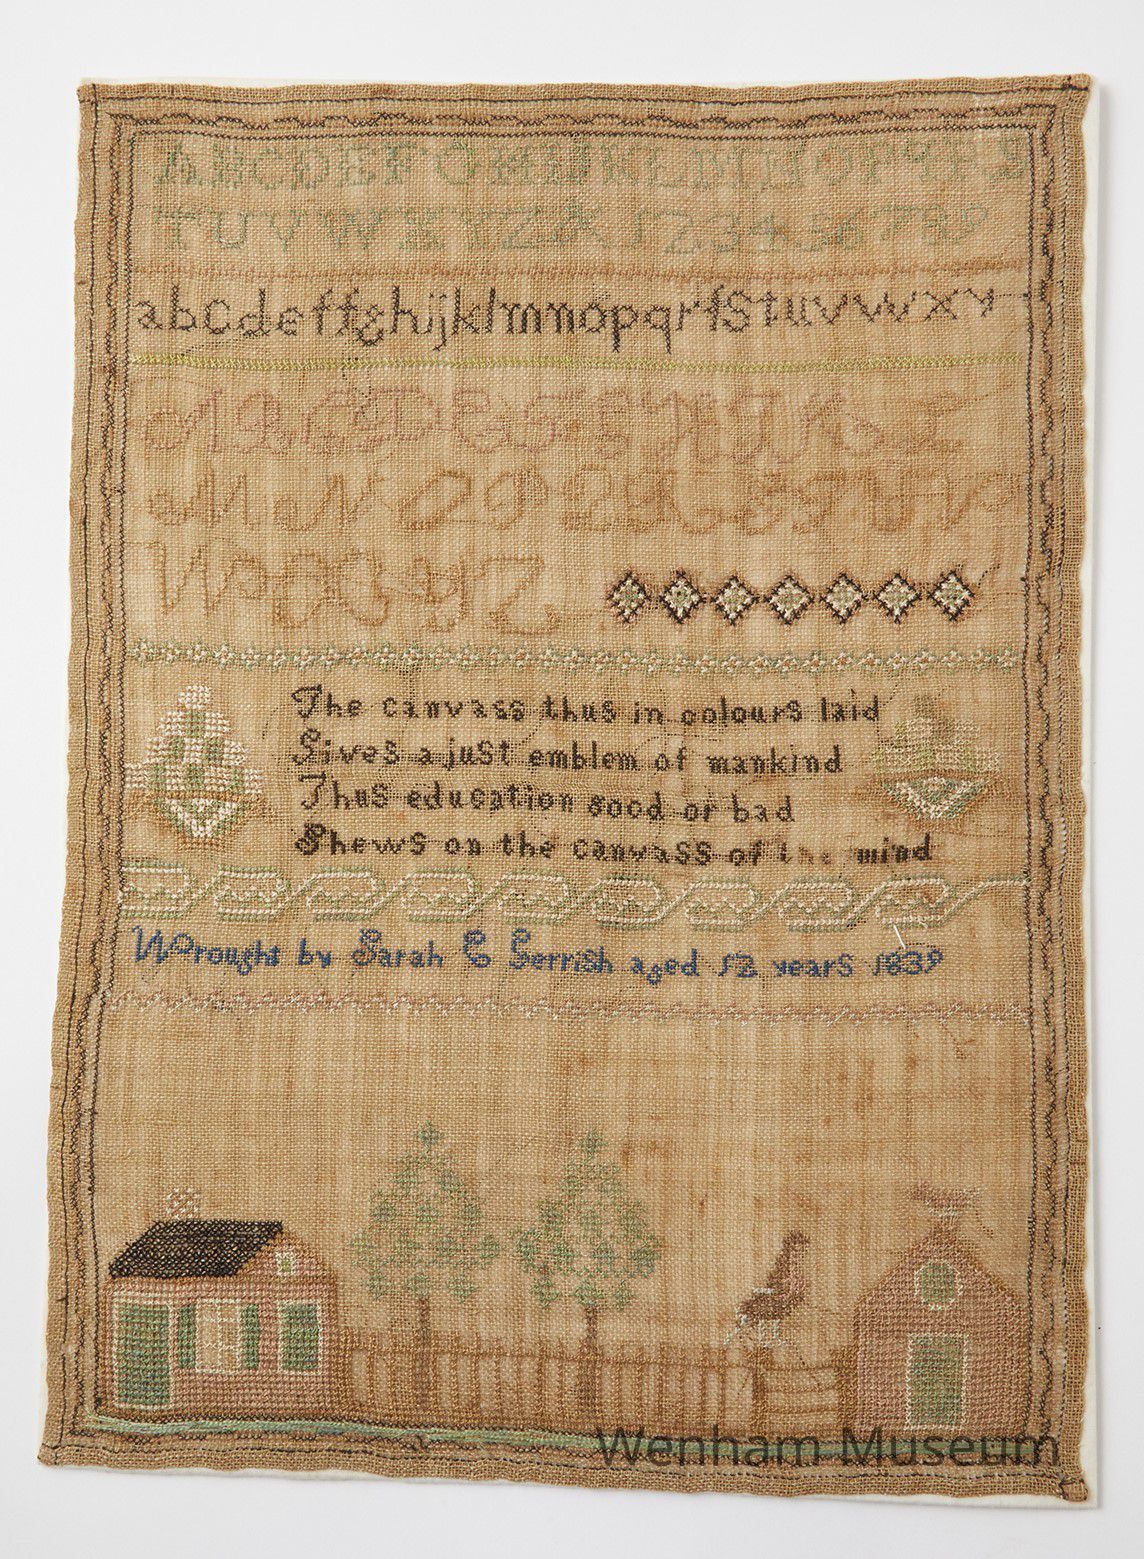 ABCDEFGHIJKLMNOPQRS
TUVWXYZ& 123456789
abcdeffghijklmnopqrſstuvwxy
The canvass thus in colours laid
Gives a just emblem of mankind
Thus education good or bad
Shews on the canvass of the mind
Wrought by Sarah C Gerrish aged 12 years 1839
Wenham Museum